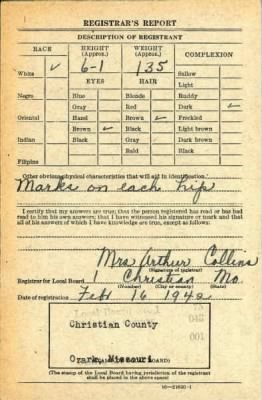 REGISTRAR'S REPORT
DESCRIPTION OF REGISTRANT
RACE HEIGHT (Approx.) WEIGHT (Approx.) COMPLEXION
White ✓ 6-1 135 Sallow
EYES HAIR Light
Negro Blue Blonde Ruddy
Gray Red Dark ✓
Oriental Hazel Brown ✓ Freckled
Brown ✓ Black Light brown
Indian Black Gray Dark brown
Bald Black
Filipino
Other obvious physical characteristics that will aid in identification
Marks on each hip
I certify that my answers are true; that the person registered has read or has had
read to him his own answers; that I have witnessed his signature or mark and that
all of his answers of which I have knowledge are true, except as follows:
Mrs Arthur Collins
(Signature of registrar)
Registrar for Local Board 1 Christian Mo.
(Number) (City or county) (State)
Date of registration Feb 16 1942
Christian County
001
Ozark, Missouri
(The stamp of the Local Board having jurisdiction of the registrant
shall be placed in the above space)